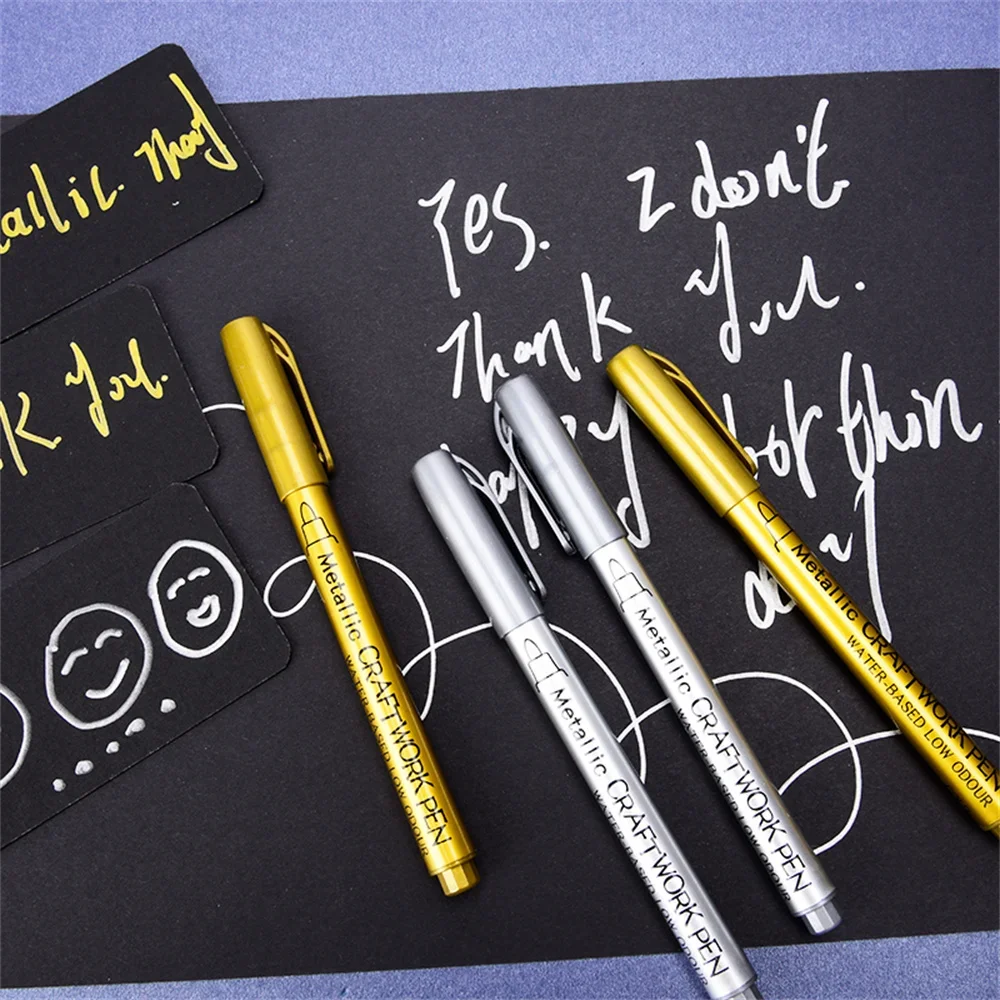 allic.
K you.
Yes. I don't
thank you.
Metallic CRAFTWORK PEN
WATER-BASED LOW ODOUR
Metallic CRAFTWORK PEN
WATER-BASED LOW ODOUR
Metallic CRAFTWORK PEN
WATER-BASED LOW ODOUR
Metallic CRAFTWORK PEN
WATER-BASED LOW ODOUR